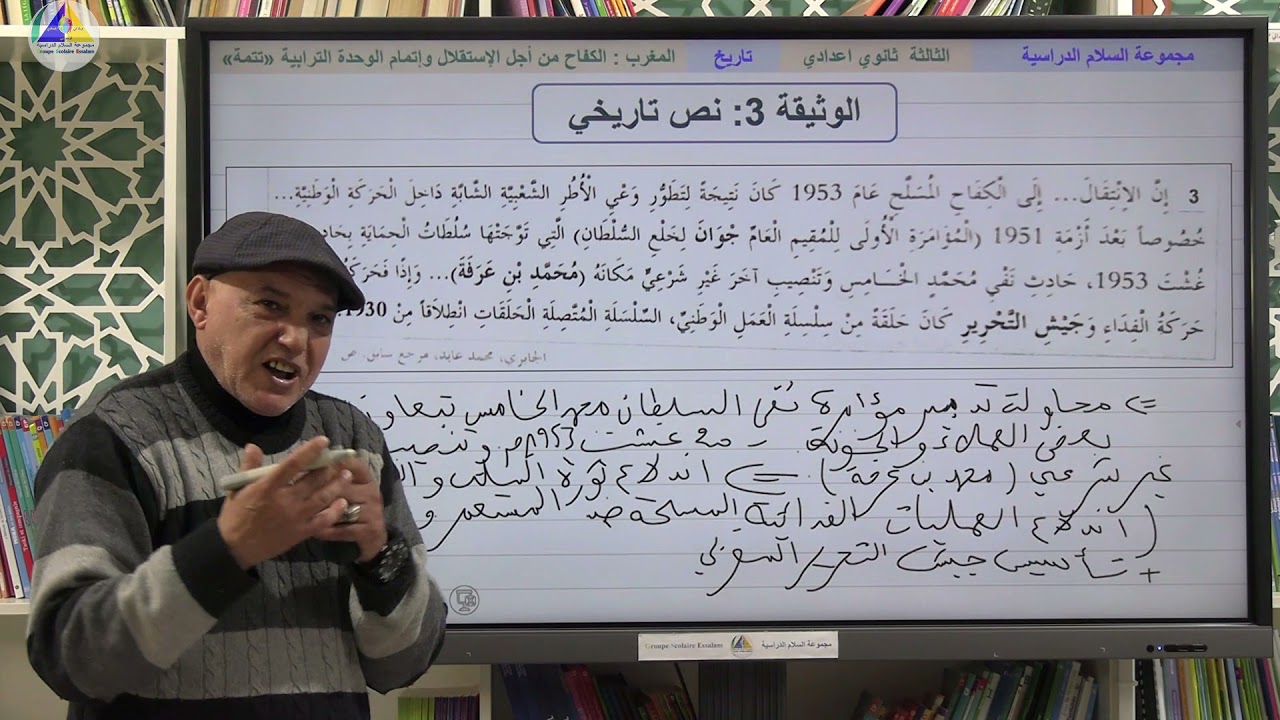 مجموعة السلام الدراسية
Groupe Scolaire Essalam
مجموعة السلام الدراسية
الثالثة ثانوي اعدادي
تاريخ
المغرب : الكفاح من أجل الإستقلال وإتمام الوحدة الترابية «تتمة»
الوثيقة 3: نص تاريخي
3 إِنَّ الاِنْتِقَالَ... إِلَى الْكِفَاحِ الْمُسَلَّحِ عَامَ 1953 كَانَ نَتِيجَةً لِتَطَوُّرِ وَعْيِ الْأُطُرِ الشَّعْبِيَّةِ الشَّابَّةِ دَاخِلَ الْحَرَكَةِ الْوَطَنِيَّةِ...
خُصُوصاً بَعْدَ أَزْمَةِ 1951 (الْمُؤَامَرَةِ الْأُولَى لِلْمُقِيمِ الْعَامِّ جْوَانْ لِخَلْعِ السُّلْطَانِ) الَّتِي تَوَّجَتْهَا سُلُطَاتُ الْحِمَايَةِ
غُشْتَ 1953، حَادِثِ نَفْيِ مُحَمَّدٍ الْخَامِسِ وَتَنْصِيبِ آخَرَ غَيْرِ شَرْعِيٍّ مَكَانَهُ (مُحَمَّدِ بْنِ عَرَفَةَ)... وَإِذًا
حَرَكَةُ الْفِدَاءِ وَجَيْشِ التَّحْرِيرِ كَانَ حَلَقَةً مِنْ سِلْسِلَةِ الْعَمَلِ الْوَطَنِيِّ، السِّلْسِلَةِ الْمُتَّصِلَةِ الْحَلَقَاتِ انْطِلَاقاً مِنْ 1930
الجابري، محمد عابد، مرجع سابق، ص
=> محاولة تدبير مؤامرة نفي السلطان محمد الخامس
بعض العملاء والخونة - غشت 1953م
غير شرعي (محمد بن عرفة). => اندلاع ثورة الملك
(اندلاع العمليات الفدائية المسلحة ضد المستعمر
+ تأسيس جيش التحرير المغربي
Groupe Scolaire Essalam
مجموعة السلام الدراسية